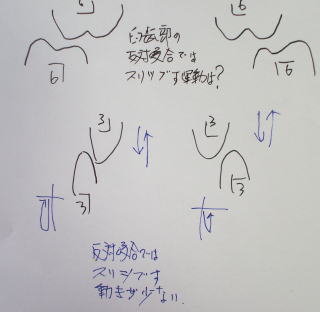 6 6
臼歯部の
反対咬合では
スリップす運動は?
6 6
3 3
3 3
反対咬合では
スリップす
動きが少ない.